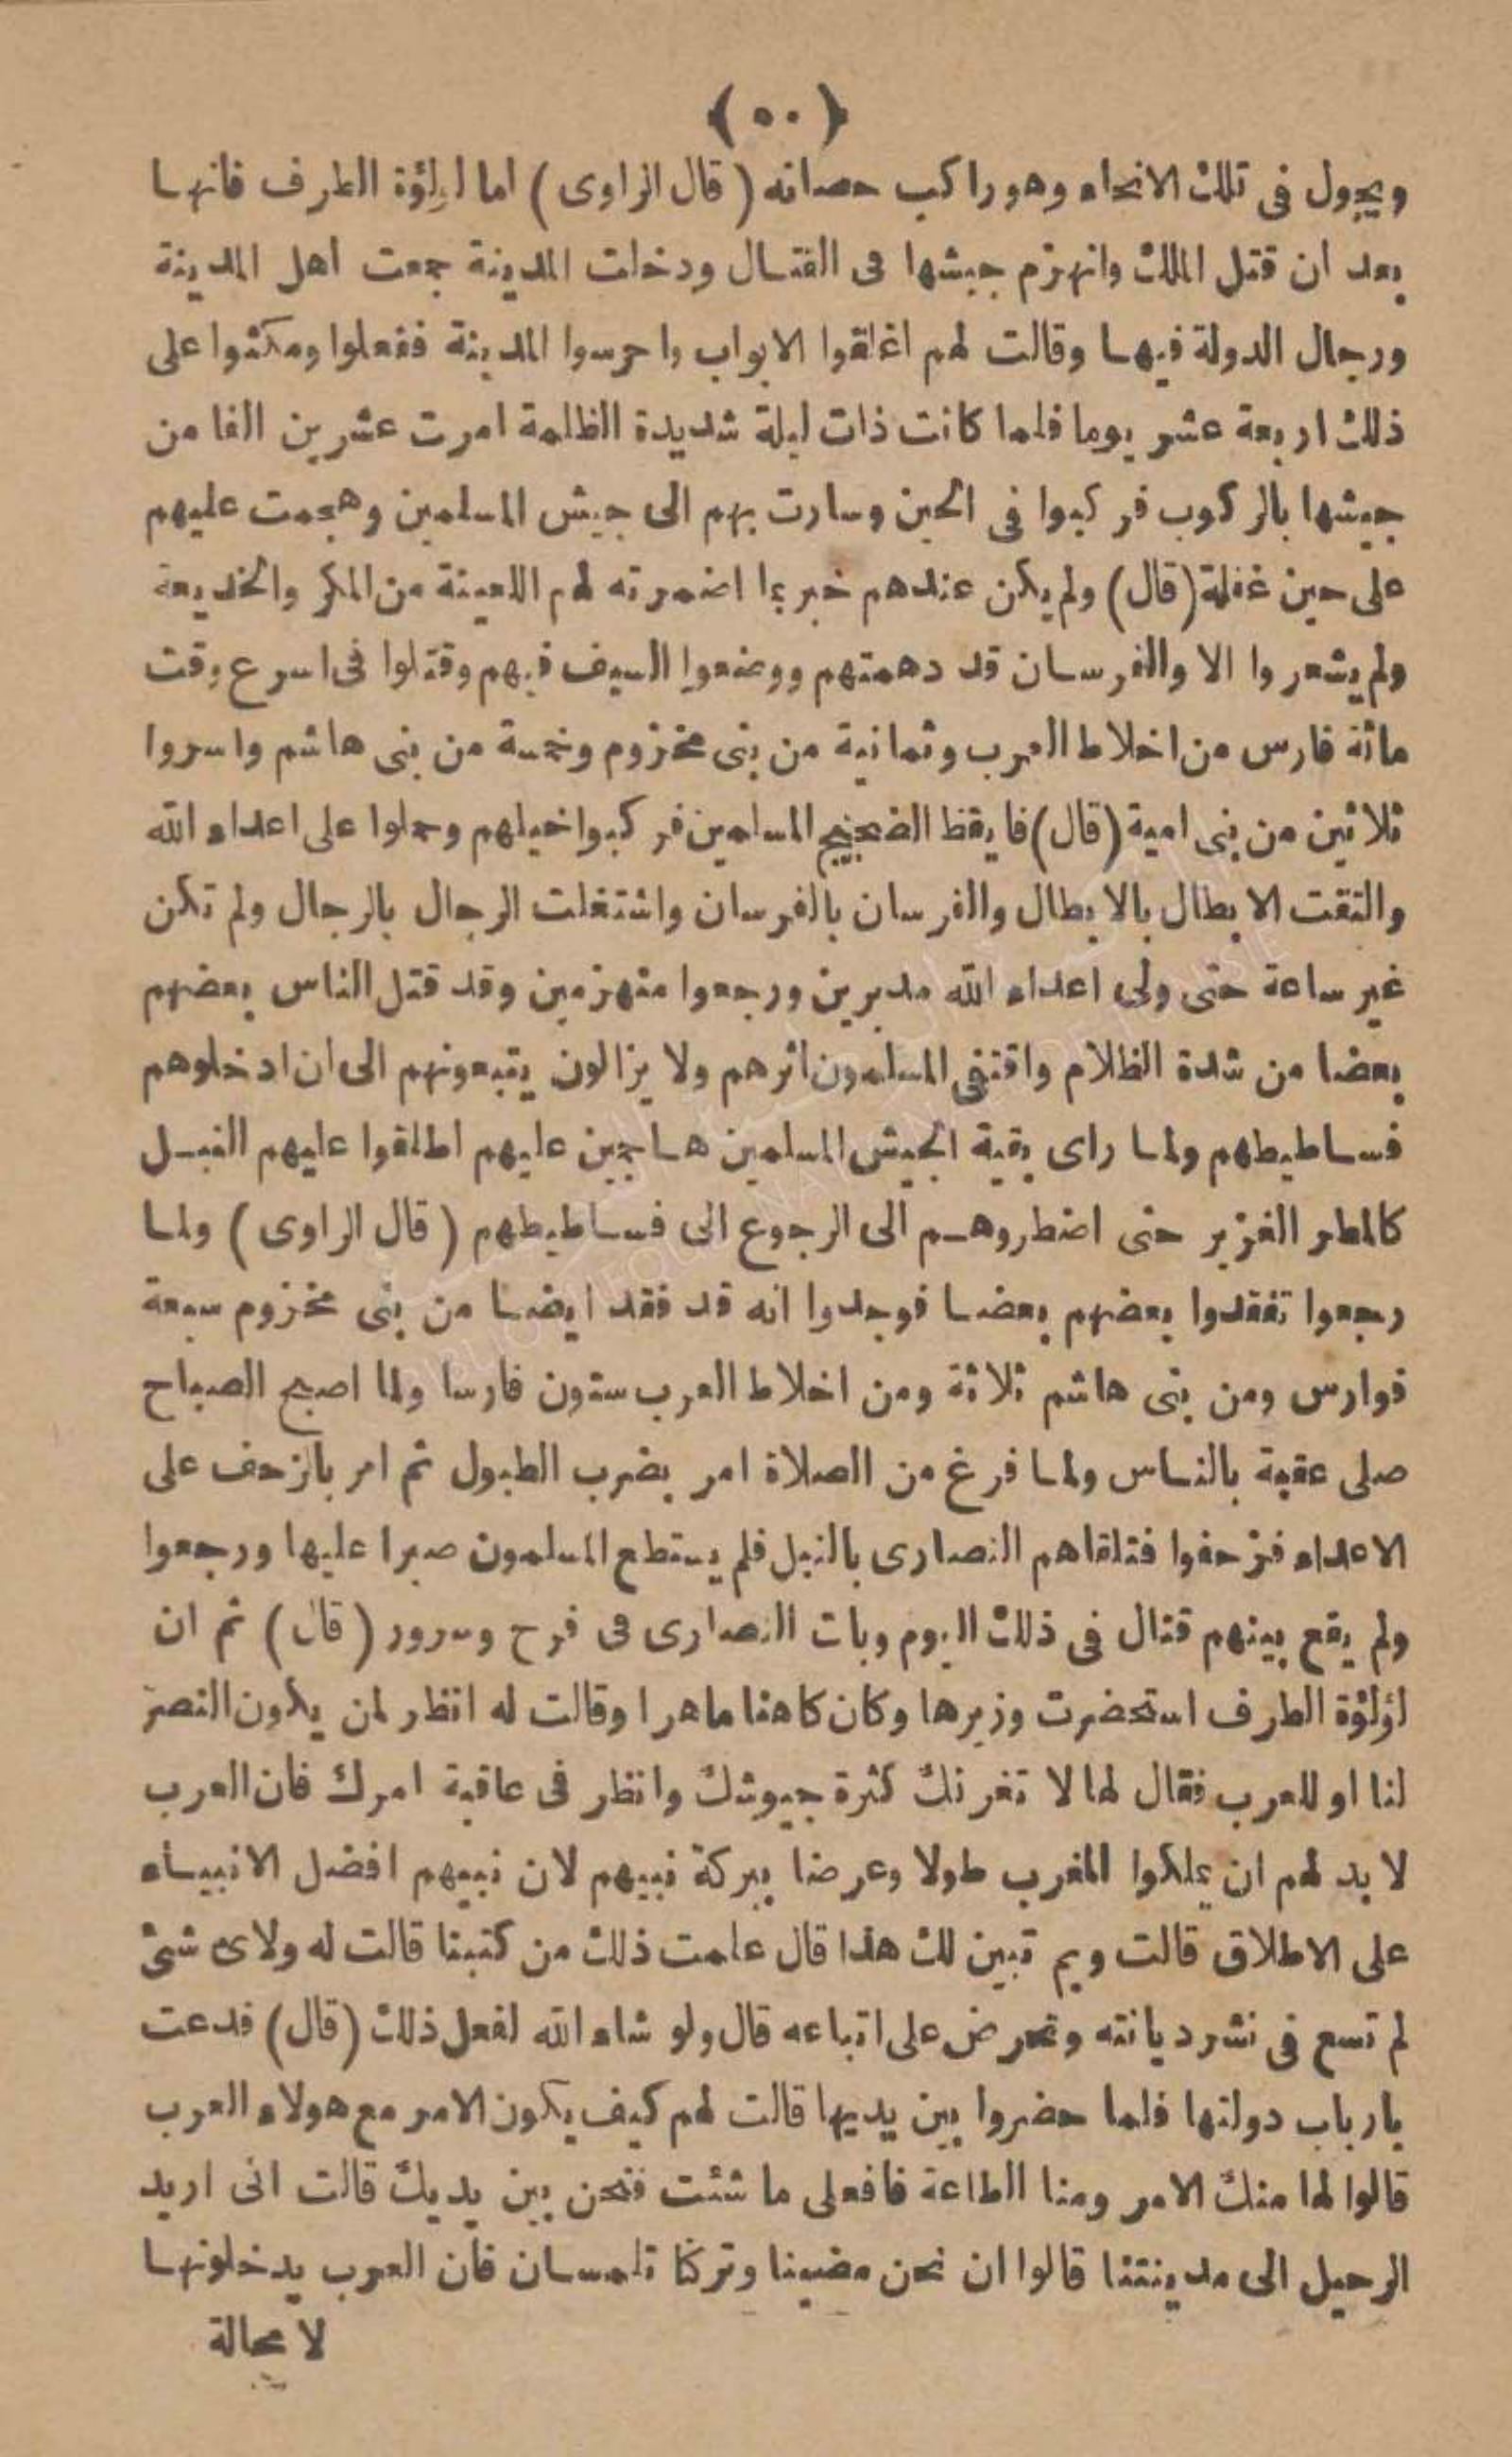 ﴿ ٥٠ ﴾
ويجول فى تلك الانحاء وهو راكب حصانه ( قال الراوى ) اما لؤلؤة الطرف فانها
بعد ان قتل الملك وانهزم جيشها فى القتال ودخلت المدينة جمعت اهل المدينة
ورجال الدولة فيها وقالت لهم اغلقوا الابواب واحرسوا المدينة ففعلوا ومكثوا على
ذلك اربعة عشر يوما فلما كانت ذات ليلة شديدة الظلمة امرت عشرين الفا من
جيشها بالركوب فركبوا فى الحين وسارت بهم الى جيش المسلمين وهجمت عليهم
على حين غفلة (قال) ولم يكن عندهم خبر بما اضمرته لهم اللعينة من المكر والخديعة
ولم يشعروا الا والفرسان قد دهمتهم ووضعوا السيف فيهم وقتلوا فى اسرع وقت
مائة فارس من اخلاط العرب وثمانية من بنى مخزوم وخمسة من بنى هاشم واسروا
ثلاثين من بنى امية (قال) فايقظ الضجيج المسلمين فركبوا خيلهم وحملوا على اعداء الله
والتقت الابطال بالابطال والفرسان بالفرسان واشتغلت الرجال بالرجال ولم تكن
غير ساعة حتى ولى اعداء الله مدبرين ورجعوا منهزمين وقد قتل الناس بعضهم
بعضا من شدة الظلام واقتفى المسلمون اثرهم ولا يزالون يتبعونهم الى ان ادخلوهم
فساطيطهم ولما راى بقية الجيش المسلمين هاجمين عليهم اطلقوا عليهم النبل
كالمطر الغزير حتى اضطروهم الى الرجوع الى فساطيطهم ( قال الراوى ) ولما
رجعوا تفقدوا بعضهم بعضا فوجدوا انه قد فقد ايضا من بنى مخزوم سبعة
فوارس ومن بنى هاشم ثلاثة ومن اخلاط العرب ستون فارسا ولما اصبح الصباح
صلى عقبة بالناس ولما فرغ من الصلاة امر بضرب الطبول ثم امر بالزحف على
الاعداء فزحفوا فتلقاهم النصارى بالنبل فلم يستطع المسلمون صبرا عليها ورجعوا
ولم يقع بينهم قتال فى ذلك اليوم وبات النصارى فى فرح وسرور (قال) ثم ان
لؤلؤة الطرف استحضرت وزيرها وكان كاهنا ماهرا وقالت له انظر لمن يكون النصر
لنا او للعرب فقال لها لا تغرنك كثرة جيوشك وانظر فى عاقبة امرك فان العرب
لا بد لهم ان يملكوا المغرب طولا وعرضا ببركة نبيهم لان نبيهم افضل الانبياء
على الاطلاق قالت وبم تبين لك هذا قال علمت ذلك من كتبنا قالت له ولاى شئ
لم تسع فى نشر ديانته وتحرض على اتباعه قال ولو شاء الله لفعل ذلك (قال) فدعت
بارباب دولتها فلما حضروا بين يديها قالت لهم كيف يكون الامر مع هولاء العرب
قالوا لها منك الامر ومنا الطاعة فافعلى ما شئت فنحن بين يديك قالت انى اريد
الرحيل الى مدينتنا قالوا ان نحن مضينا وتركنا تلمسان فان العرب يدخلونها
لا محالة